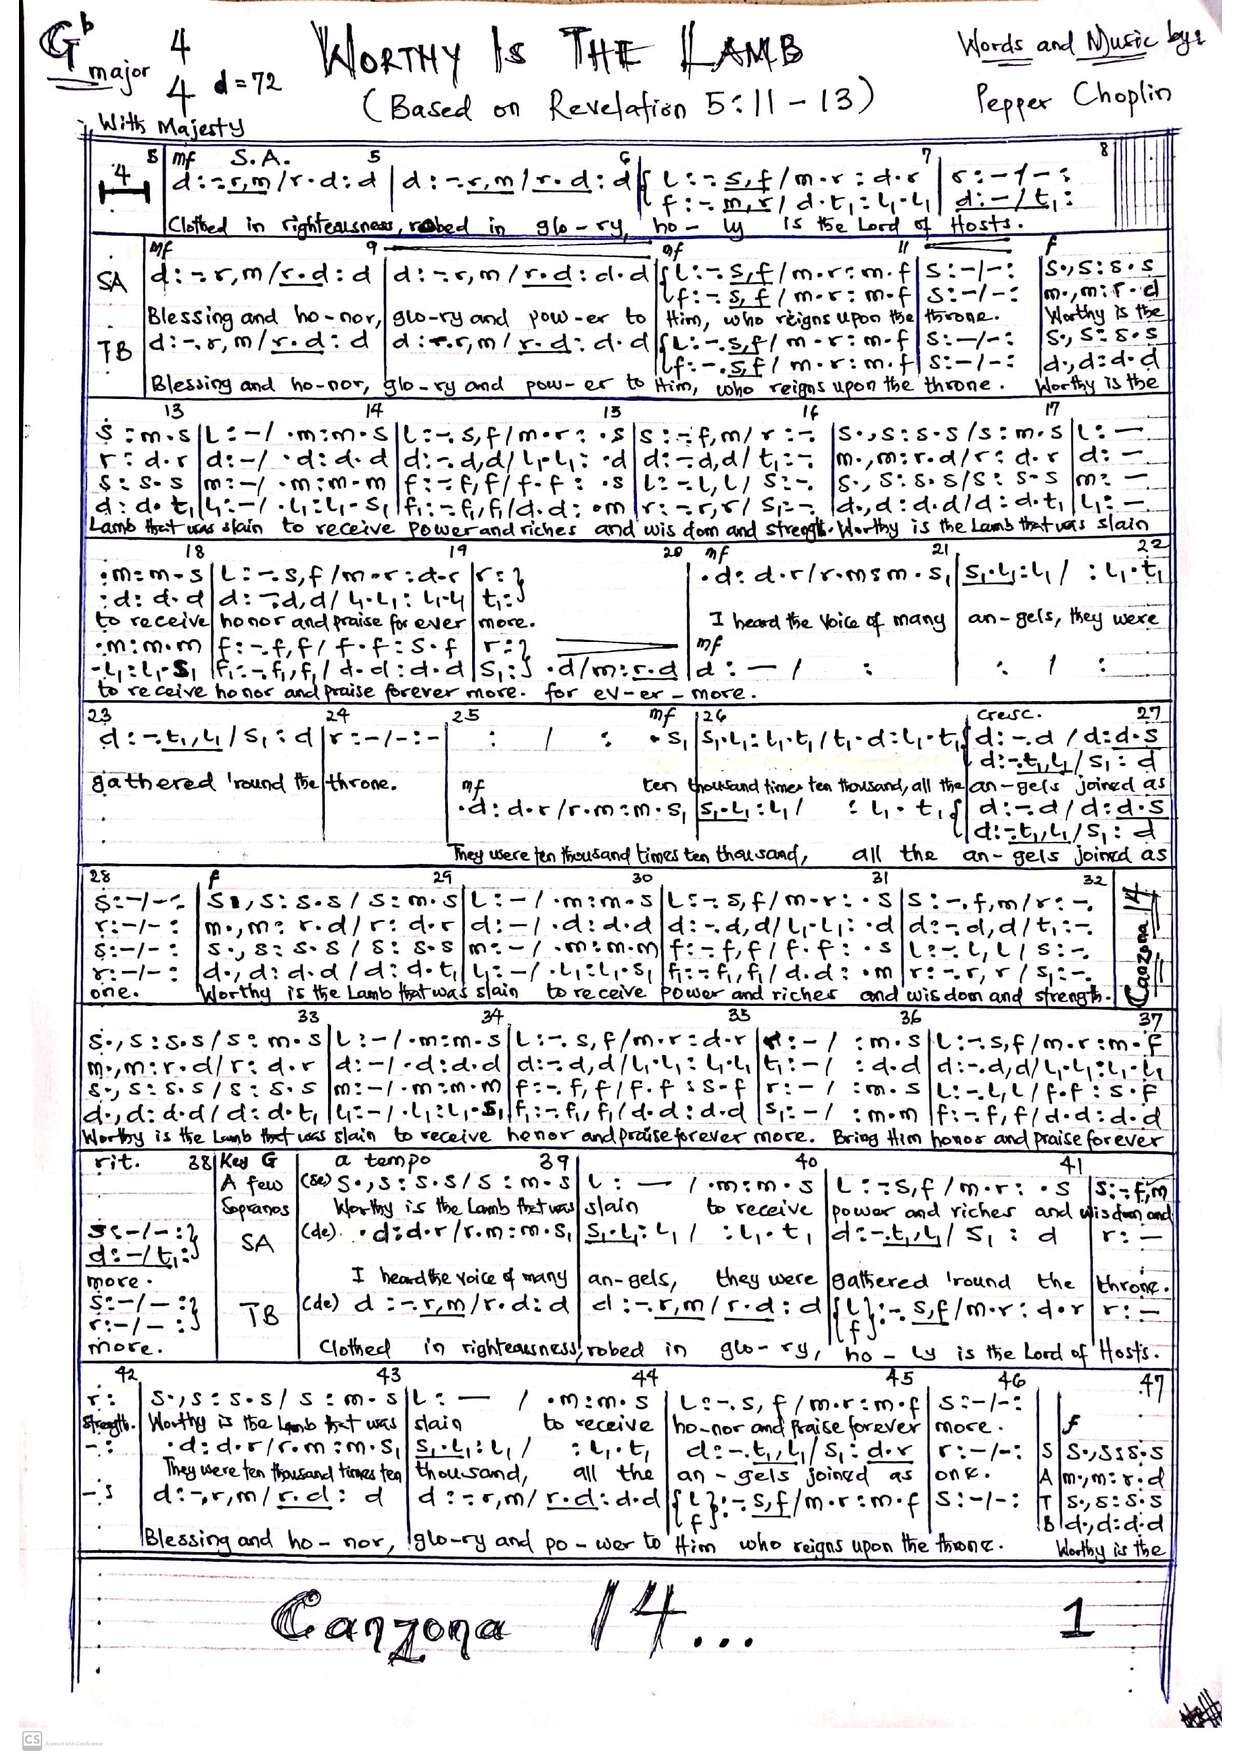 G♭ major 4/4 d=72
WORTHY IS THE LAMB
Words and Music by:
(Based on Revelation 5:11-13)
Pepper Choplin
With Majesty
5 mf S.A. 5 6 7 8
4 d:-.r,m/r.d:d | d:-.r,m/r.d:d | { L:-.s,f/m.r:d.r | r:-/-:
f:-.m,r/d.t₁:L₁.L₁ | d:-/t₁:
Clothed in righteausness, robed in glo-ry, ho-ly is the Lord of Hosts.
mf 9 mf 11 f
SA d:-.r,m/r.d:d | d:-.r,m/r.d:d.d | { L:-.s,f/m.r:m.f | s:-/-: | s.,s:s.s
f:-.s,f/m.r:m.f | s:-/-: | m.,m:r.d
Blessing and ho-nor, glo-ry and pow-er to Him, who reigns upon the throne. Worthy is the
TB d:-.r,m/r.d:d | d:-.r,m/r.d:d.d | { L:-.s,f/m.r:m.f | s:-/-: | s.,s:s.s
f:-.s,f/m.r:m.f | s:-/-: | d.,d:d.d
Blessing and ho-nor, glo-ry and pow-er to Him, who reigns upon the throne. Worthy is the
13 14 15 16 17
s:m.s | L:-/.m:m.s | L:-.s,f/m.r:.s | s:-.f,m/r:-. | s.,s:s.s/s:m.s | L:-
r:d.r | d:-/.d:d.d | d:-.d,d/L₁.L₁:.d | d:-.d,d/t₁:-. | m.,m:r.d/r:d.r | d:-
s:s.s | m:-/.m:m.m | f:-.f,f/f.f:.s | L:-.L,L/s:-. | s.,s:s.s/s:s.s | m:-
d:d.t₁ | L₁:-/.L₁:L₁.s₁ | f₁:-.f₁,f₁/d.d:.m | r:-.r,r/s₁:-. | d.,d:d.d/d:d.t₁ | L₁:-
Lamb that was slain to receive power and riches and wis dom and strength. Worthy is the Lamb that was slain
18 19 20 mf 21 22
.m:m.s | L:-.s,f/m.r:d.r | r:} | .d:d.r/r.m:m.s₁ | s₁.L₁:L₁/ :L₁.t₁
:d:d.d | d:-.d,d/L₁.L₁:L₁.L₁ | t₁:}
to receive honor and praise for ever more. I heard the voice of many an-gels, they were
.m:m.m | f:-.f,f/f.f:s.f | r:} mf
.L₁:L₁.s₁ | f₁:-.f₁,f₁/d.d:d.d | s₁:} .d/m:r.d | d:-/ : | : / :
to receive honor and praise forever more. for ev-er-more.
23 24 25 mf 26 cresc. 27
d:-.t₁,L₁/s₁:d | r:-/-:- | : / : .s₁ | s₁.L₁:L₁.t₁/t₁.d:L₁.t₁ { d:-.d/d:d.s
d:-.t₁,L₁/s₁:d
gathered 'round the throne. mf ten thousand times ten thousand, all the an-gels joined as
.d:d.r/r.m:m.s₁ | s₁.L₁:L₁/ :L₁.t₁ { d:-.d/d:d.s
d:-.t₁,L₁/s₁:d
They were ten thousand times ten thousand, all the an-gels joined as
28 f 29 30 31 32
s:-/-: | s.,s:s.s/s:m.s | L:-/.m:m.s | L:-.s,f/m.r:.s | s:-.f,m/r:-.
r:-/-: | m.,m:r.d/r:d.r | d:-/.d:d.d | d:-.d,d/L₁.L₁:.d | d:-.d,d/t₁:-.
s:-/-: | s.,s:s.s/s:s.s | m:-/.m:m.m | f:-.f,f/f.f:.s | L:-.L,L/s:-.
r:-/-: | d.,d:d.d/d:d.t₁ | L₁:-/.L₁:L₁.s₁ | f₁:-.f₁,f₁/d.d:.m | r:-.r,r/s₁:-.
one. Worthy is the Lamb that was slain to receive power and riches and wis dom and strength.
Canzona 14
33 34 35 36 37
s.,s:s.s/s:m.s | L:-/.m:m.s | L:-.s,f/m.r:d.r | r:-/ :m.s | L:-.s,f/m.r:m.f
m.,m:r.d/r:d.r | d:-/.d:d.d | d:-.d,d/L₁.L₁:L₁.L₁ | t₁:-/ :d.d | d:-.d,d/L₁.L₁:L₁.L₁
s.,s:s.s/s:s.s | m:-/.m:m.m | f:-.f,f/f.f:s.f | r:-/ :m.s | L:-.L,L/f.f:s.f
d.,d:d.d/d:d.t₁ | L₁:-/.L₁:L₁.s₁ | f₁:-.f₁,f₁/d.d:d.d | s₁:-/ :m.m | f:-.f,f/d.d:d.d
Worthy is the Lamb that was slain to receive honor and praise forever more. Bring Him honor and praise forever
rit. 38 Key G a tempo 39 40 41
A few Sopranos (se) s.,s:s.s/s:m.s | L:-/.m:m.s | L:-.s,f/m.r:.s | s:-.f,m
Worthy is the Lamb that was slain to receive power and riches and wisdom and
s:-/-:} SA (de) .d:d.r/r.m:m.s₁ | s₁.L₁:L₁/ :L₁.t₁ | d:-.t₁,L₁/s₁:d | r:-
d:-/t₁:}
more. I heard the voice of many an-gels, they were gathered 'round the throne.
s:-/-:} TB (de) d:-.r,m/r.d:d | d:-.r,m/r.d:d | {L f}:-.s,f/m.r:d.r | r:-
r:-/-:}
more. Clothed in righteausness, robed in glo-ry, ho-ly is the Lord of Hosts.
42 43 44 45 46 47
r: | s.,s:s.s/s:m.s | L:-/.m:m.s | L:-.s,f/m.r:m.f | s:-/-: f
strength. Worthy is the Lamb that was slain to receive ho-nor and praise forever more.
-: | .d:d.r/r.m:m.s₁ | s₁.L₁:L₁/ :L₁.t₁ | d:-.t₁,L₁/s₁:d.r | r:-/-: | S | s.,s:s.s
They were ten thousand times ten thousand, all the an-gels joined as one. A | m.,m:r.d
-: | d:-.r,m/r.d:d | d:-.r,m/r.d:d.d | {L f}:-.s,f/m.r:m.f | s:-/-: | T | s.,s:s.s
B | d.,d:d.d
Blessing and ho-nor, glo-ry and po-wer to Him who reigns upon the throne. Worthy is the
Canzona 14... 1
CS